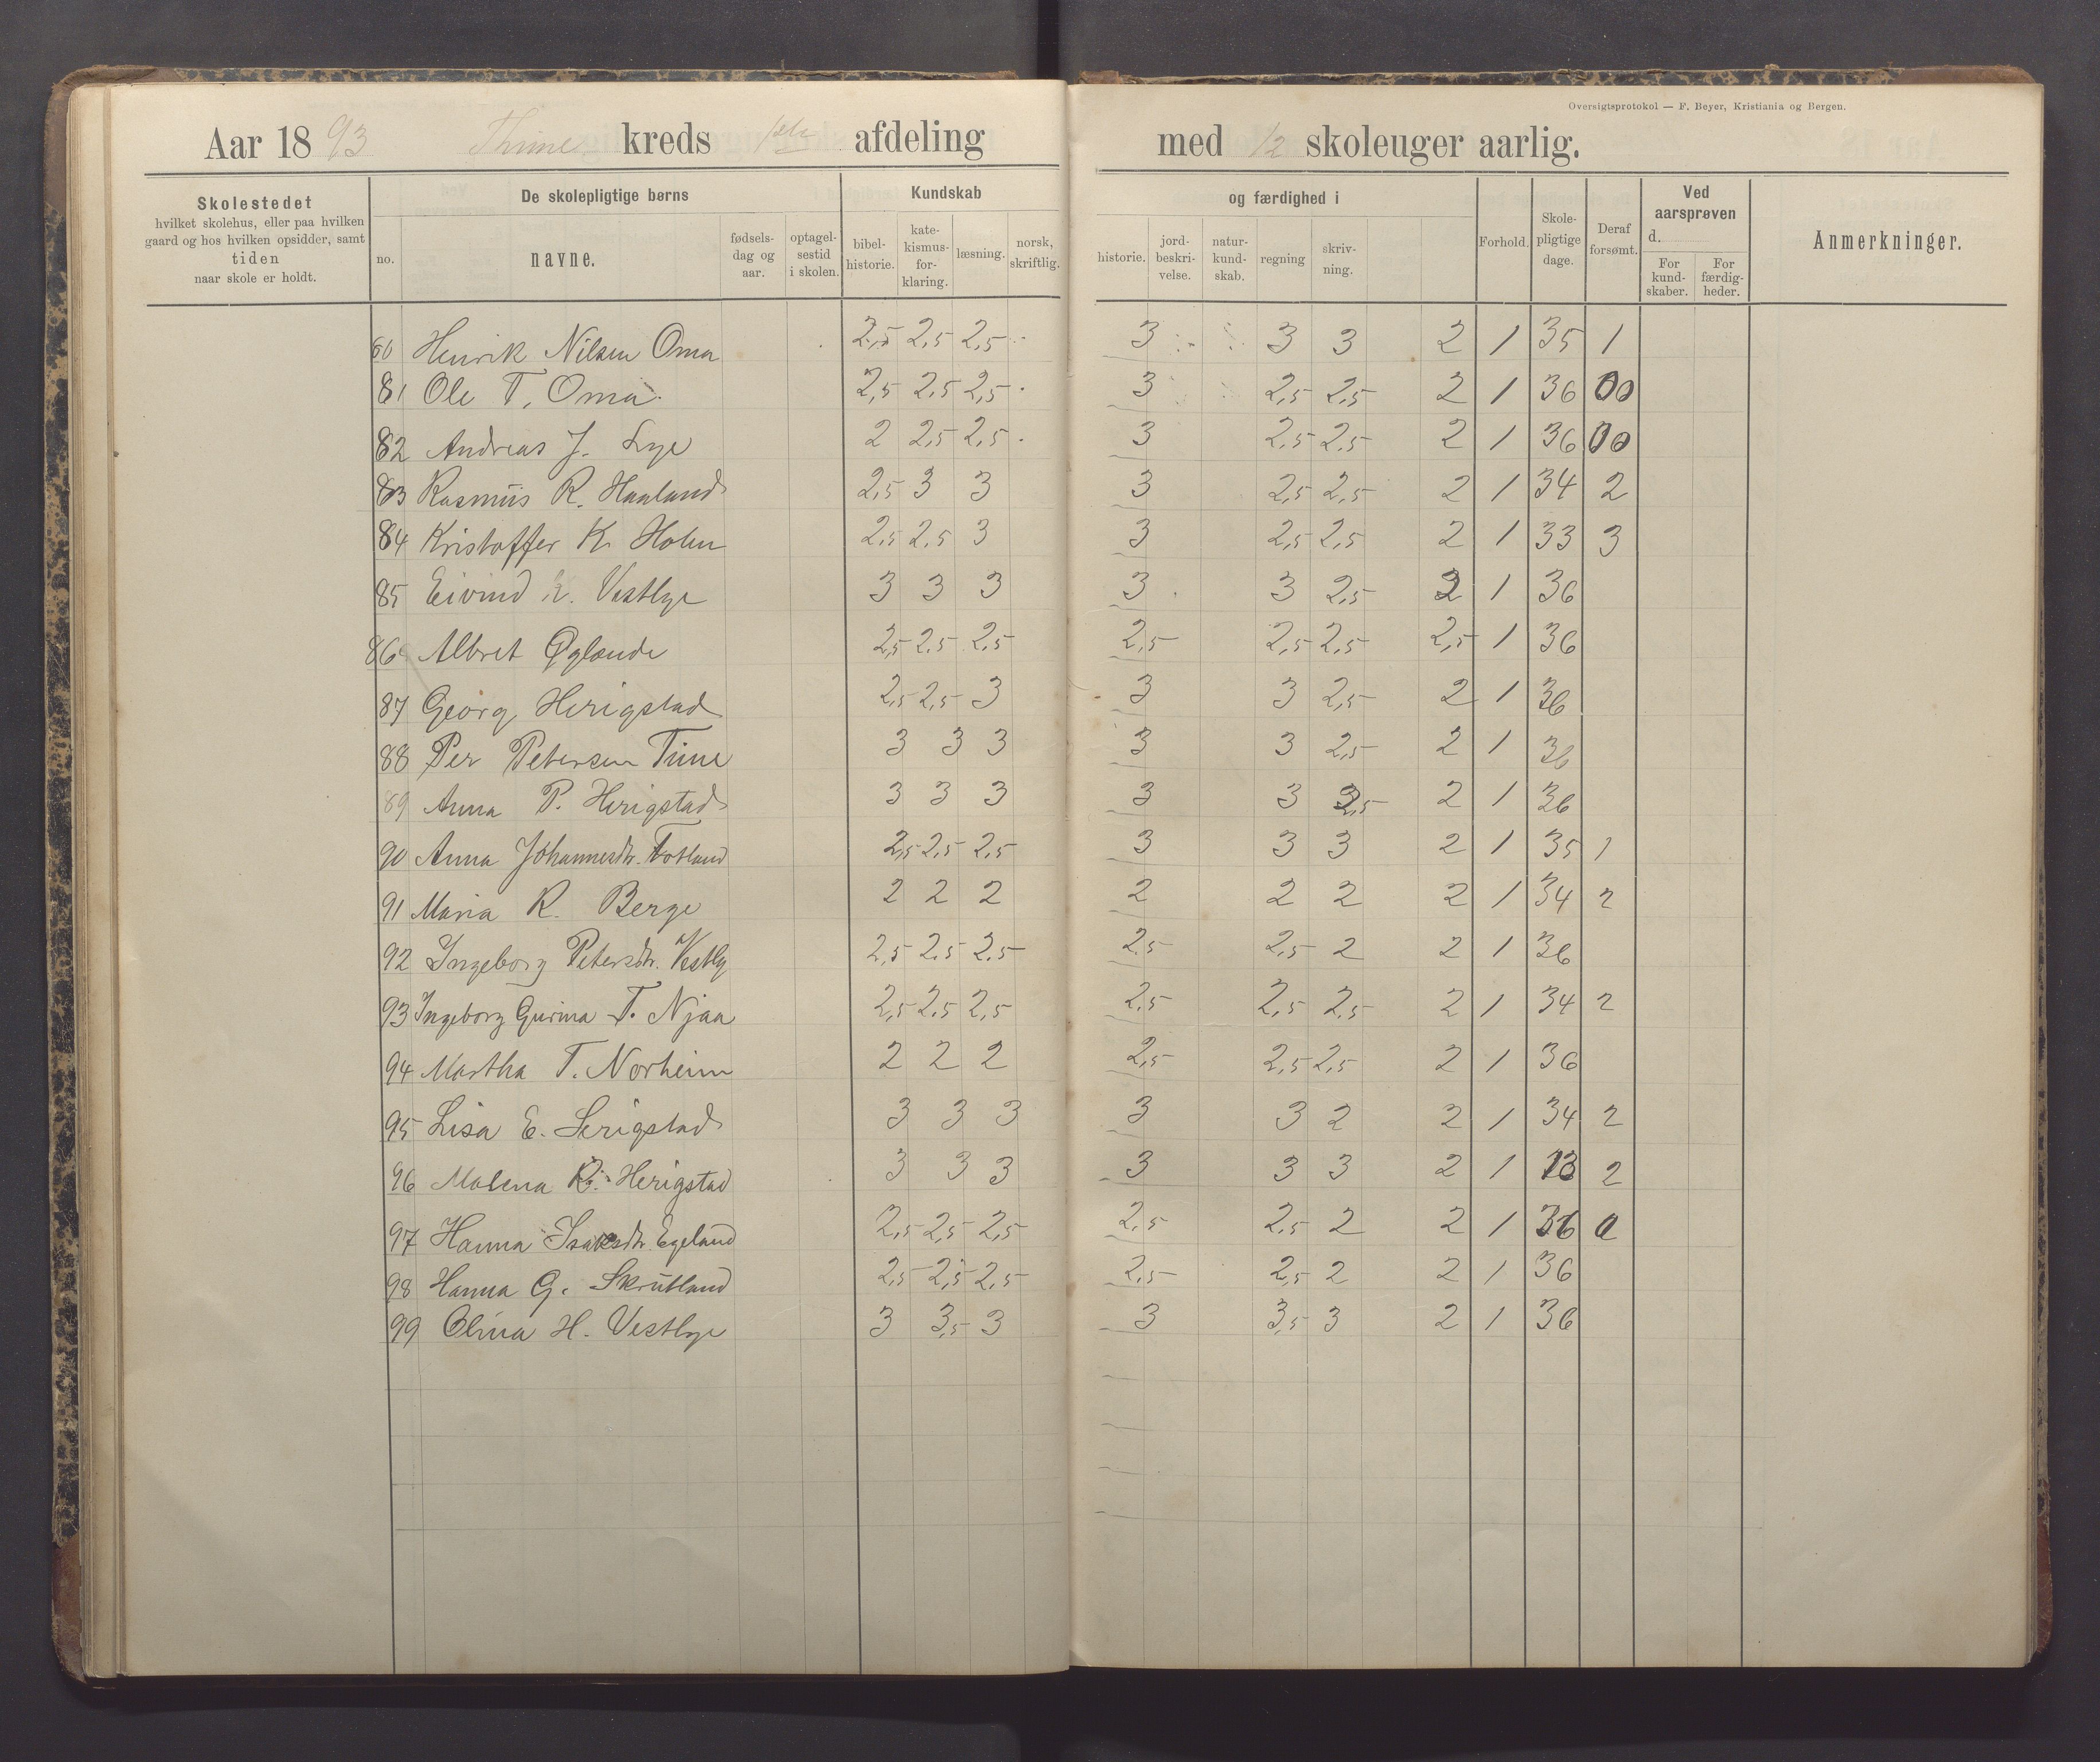 Oversigtsprotokol — F. Beyer, Kristiania og Bergen.
Aar 1893 Thime kreds 1ste afdeling med 12 skoleuger aarlig.
Skolestedet
hvilket skolehus, eller paa hvilken
gaard og hos hvilken opsidder, samt
tiden
naar skole er holdt.
De skolepligtige børns
no.
navne.
fødsels-
dag og
aar.
optagel-
sestid
i skolen.
Kundskab
bibel-
historie.
kate-
kismus-
for-
klaring.
læsning.
norsk,
skriftlig.
og færdighed i
historie.
jord-
beskri-
velse.
natur-
kund-
skab.
regning
skriv-
ning.
Forhold.
Skole-
pligtige
dage.
Deraf
forsømt.
Ved
aarsprøven
d.
For
kund-
skaber.
For
færdig-
heder.
Anmerkninger.
80 Henrik Nilsen Oma 2,5 2,5 2,5 3 3 3 2 1 35 1
81 Ole T. Oma 2,5 2,5 2,5 3 2,5 2,5 2 1 36 00
82 Andreas J. Lye 2 2,5 2,5 3 2,5 2,5 2 1 36 00
83 Rasmus R. Haaland 2,5 3 3 3 2,5 2,5 2 1 34 2
84 Kristoffer K. Holm 2,5 2,5 3 3 2,5 2,5 2 1 33 3
85 Eivind E. Vestlye 3 3 3 3 3 2,5 2 1 36
86 Albret Øglænde 2,5 2,5 2,5 2,5 2,5 2,5 2,5 1 36
87 Georg Herigstad 2,5 2,5 3 3 3 2,5 2 1 36
88 Per Petersen Time 3 3 3 3 3 2,5 2 1 36
89 Anna P. Herigstad 3 3 3 3 3 2,5 2 1 36
90 Anna Johannesdtr. Fotland 2,5 2,5 2,5 3 3 3 2 1 35 1
91 Maria R. Berge 2 2 2 2 2 2 2 1 34 2
92 Ingeborg Petersdtr. Vestly 2,5 2,5 2,5 2,5 2,5 2 2 1 36
93 Ingeborg Gurina T. Njaa 2,5 2,5 2,5 2,5 2,5 2,5 2 1 34 2
94 Martha T. Norheim 2 2 2 2,5 2,5 2,5 2 1 36
95 Lisa E. Serigstad 3 3 3 3 3 2 2 1 34 2
96 Malena R. Herigstad 3 3 3 3 3 3 2 1 13 2
97 Hanna Isaksdtr. Egeland 2,5 2,5 2,5 2,5 2,5 2 2 1 36 0
98 Hanna G. Skrutland 2,5 2,5 2,5 2,5 2,5 2 2 1 36
99 Olina H. Vestlye 3 3,5 3 3 3,5 3 2 1 36